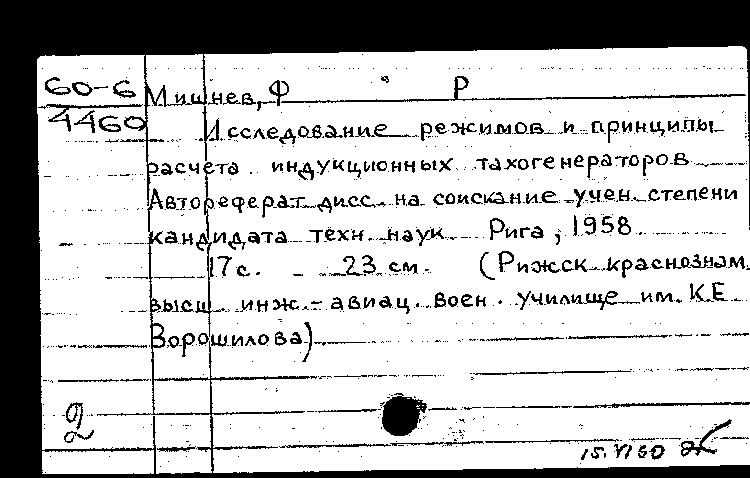 60-6
4460
Мишнев, Ф Р
Исследование режимов и принципы
расчета индукционных тахогенераторов
Автореферат дисс. на соискание учен. степени
кандидата техн. наук. Рига, 1958
17с. - 23 см. (Рижск краснознам.
высш инж.-авиац. воен. училище им. К.Е
Ворошилова)
2
15.VI 60